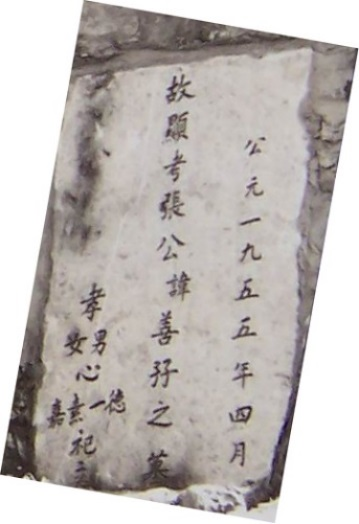 公元一九五五年四月
故顯考張公諱善孖之墓
孝男女心德一素嘉祀